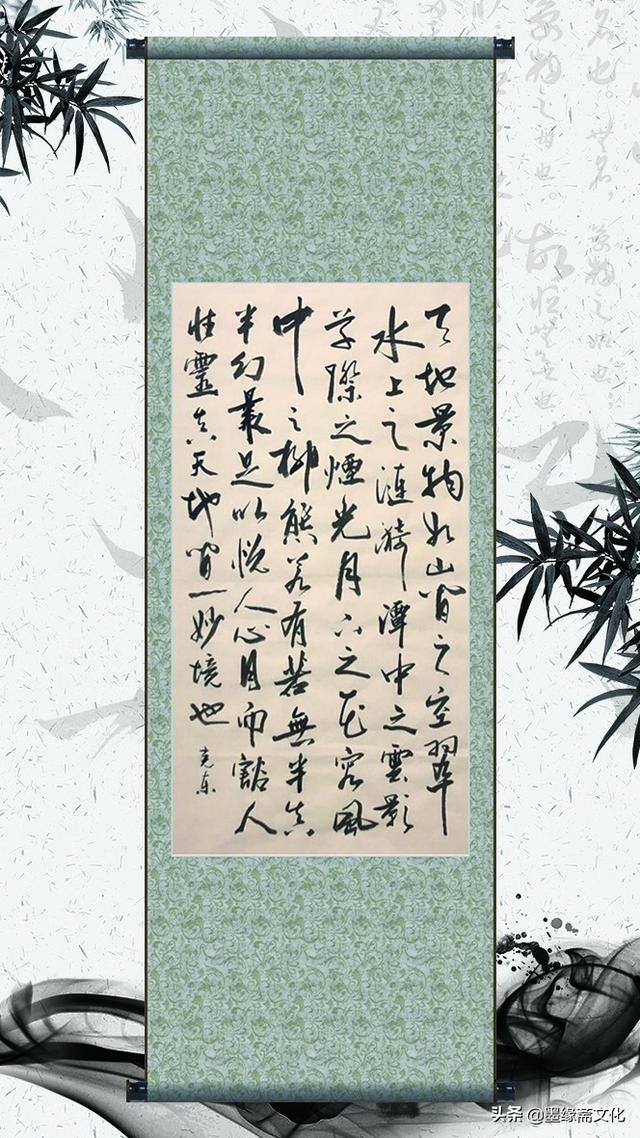 天地景物如山間之空翠
水上之漣漪潭中之雲影
草際之煙光月下之花容風
中之柳態若有若無半真
半幻最足以悅人心目而豁人
性靈真天地間一妙境也
克东
头条 @墨缘斋文化